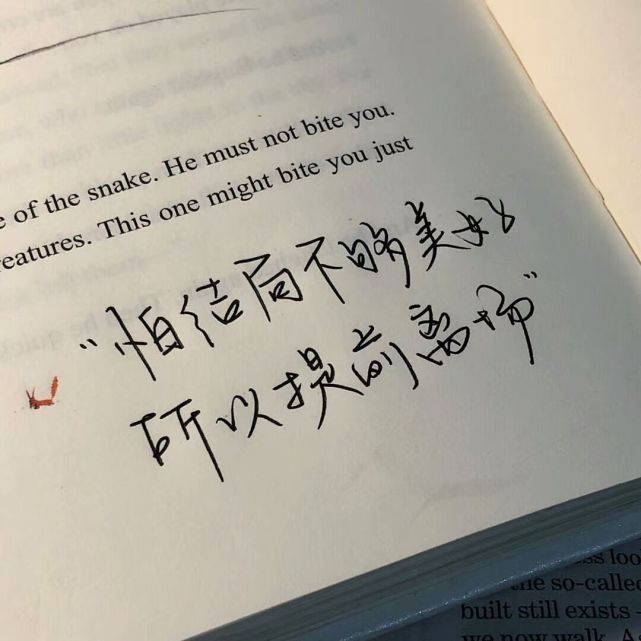 e of the snake. He must not bite you.
reatures. This one might bite you just
“怕结局不够美好
所以提前离场”
ss loo
the so-called
built still exists
we now walk. A